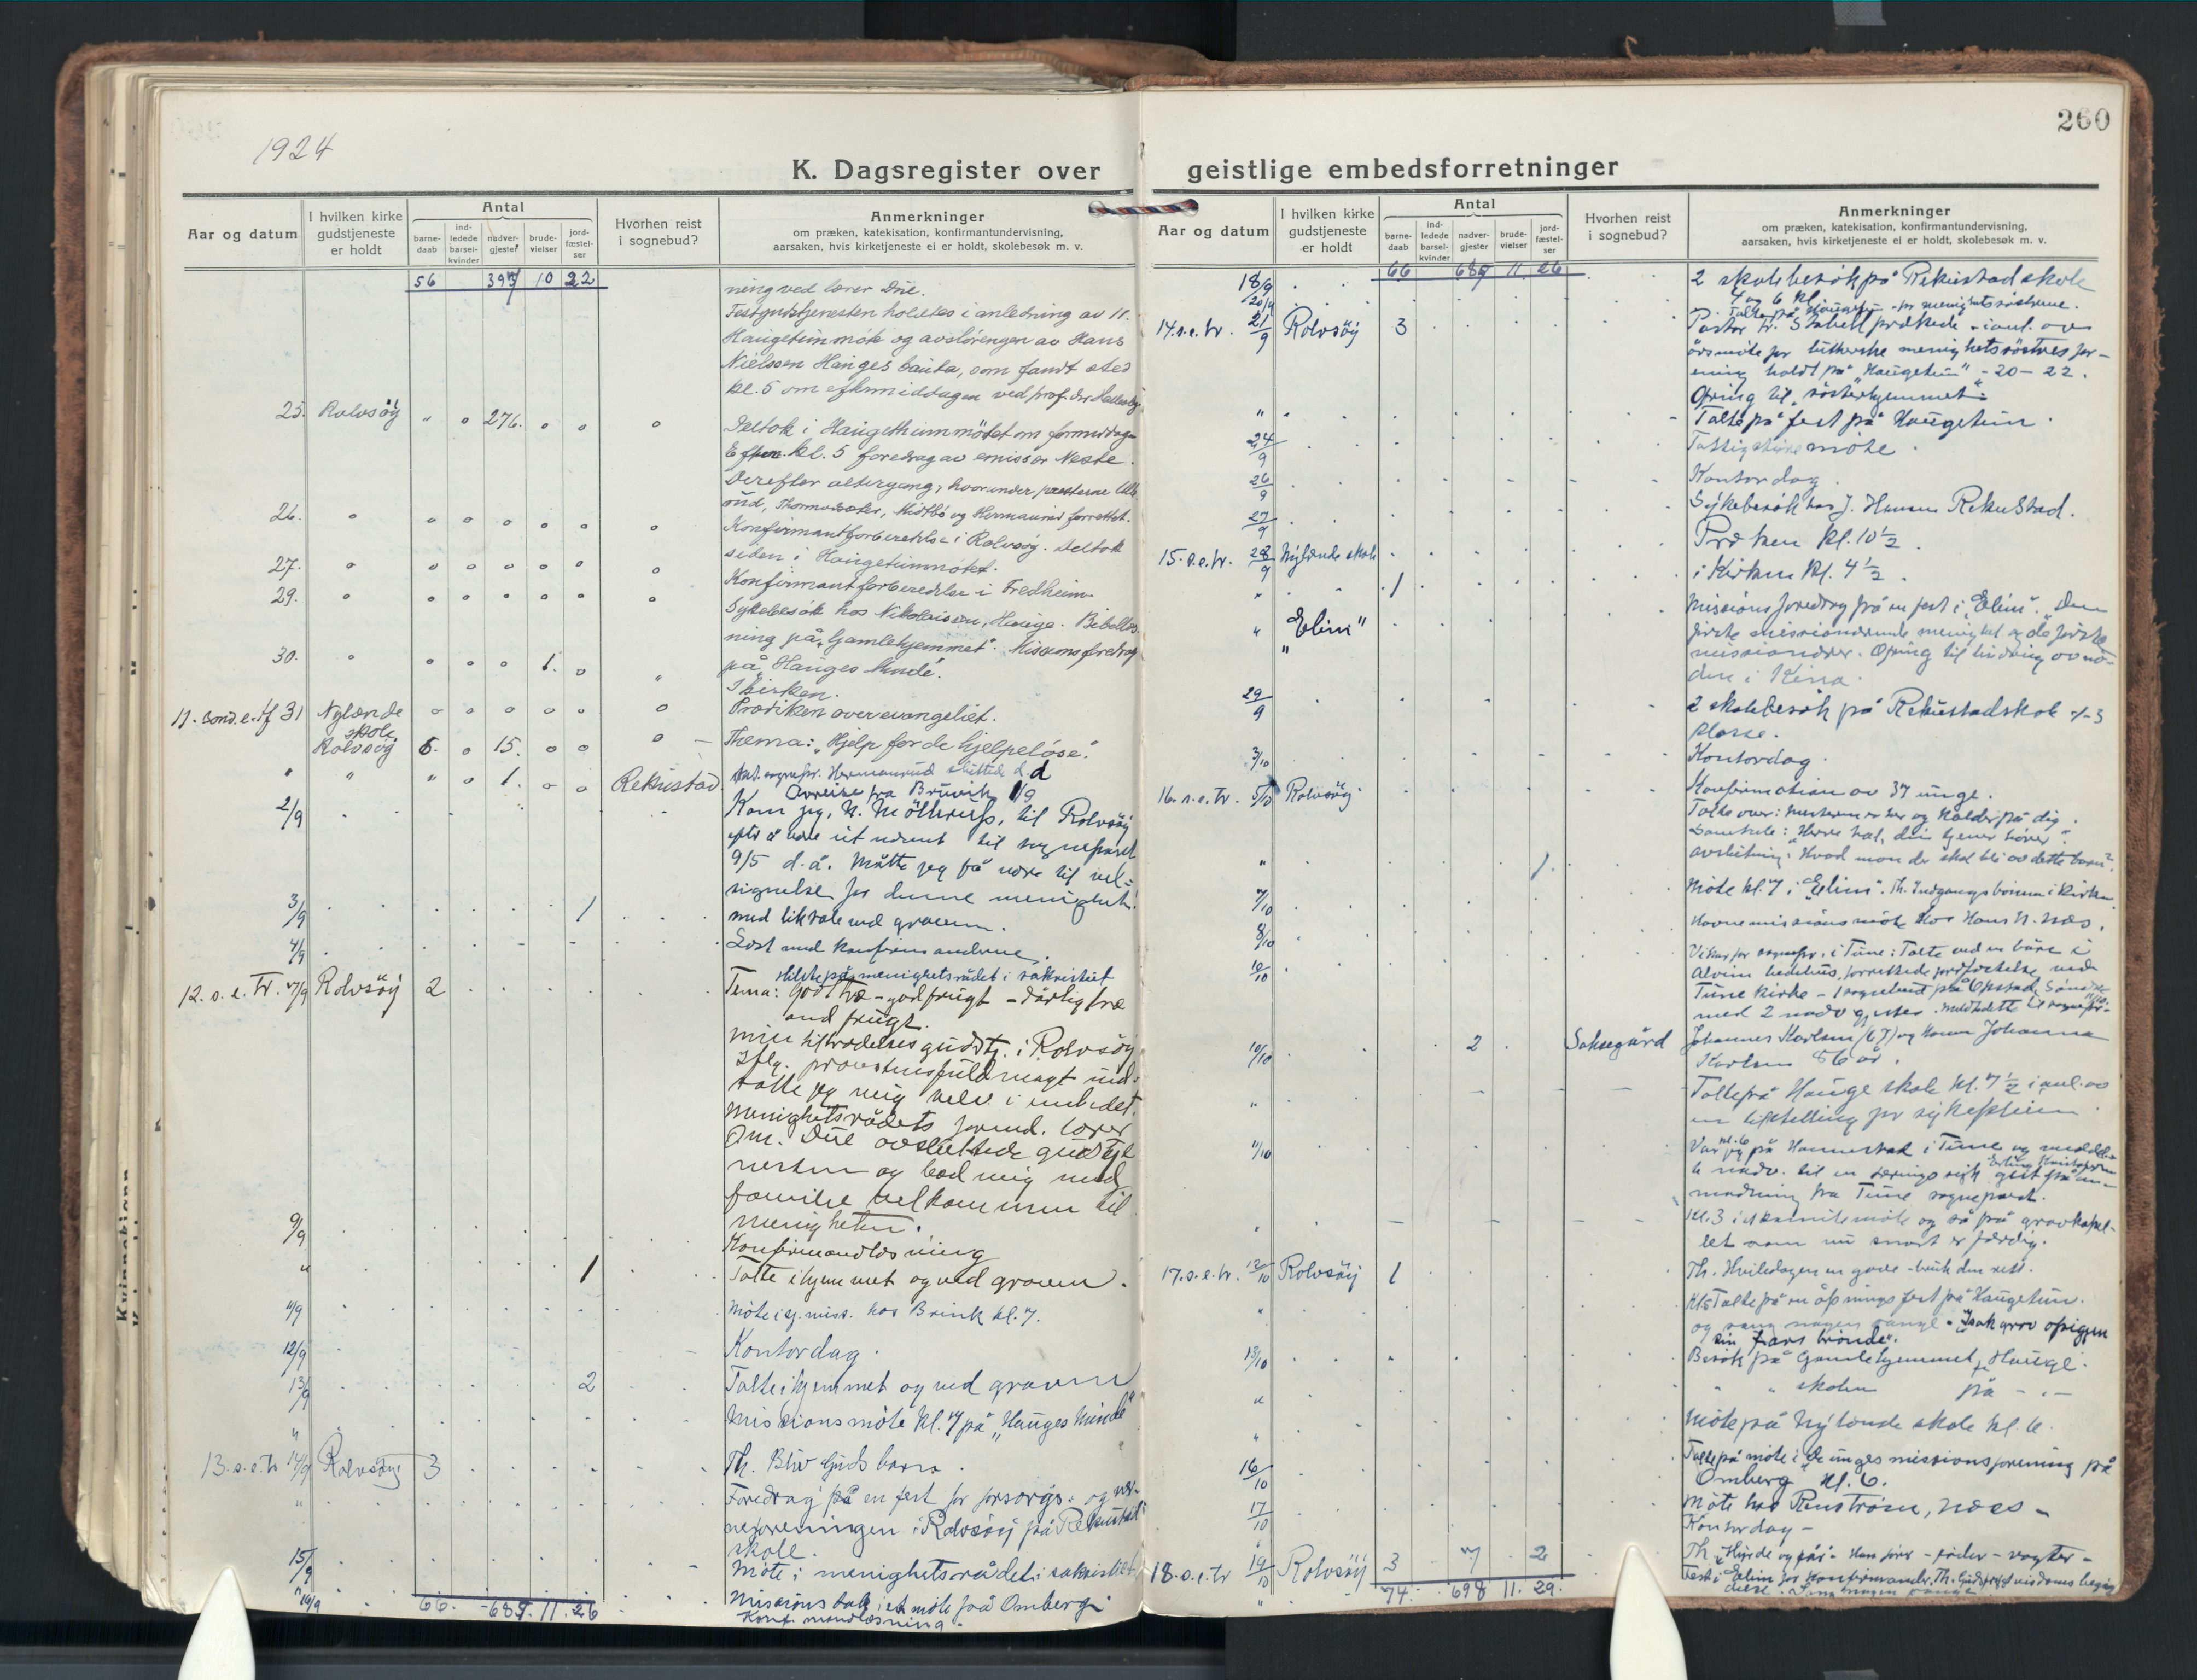 260
1924
K. Dagsregister over geistlige embedsforretninger
Aar og datum
I hvilken kirke gudstjeneste er holdt
Antal
barne-daab
ind-ledede barsel-kvinder
nadver-gjester
brude-vielser
jord-fæstel-ser
Hvorhen reist i sognebud?
Anmerkninger
om præken, katekisation, konfirmantundervisning,
aarsaken, hvis kirketjeneste ei er holdt, skolebesøk m. v.
56 397 10 22
ning ved lærer Due.
Festgudstjenesten holdtes i anledning av 11.
Haugetunmøte og avsløringen av Hans
Nielssen Hauges bauta, som fandt sted
kl. 5 om eftermiddagen ved prof. dr. Hallesby.
25. Rolvsöy " o 276. o o o Deltok i Haugetunmötet om formiddagen
Efterm. kl. 5 foredrag av emissær Neste.
Derefter altergang, hvorunder presterne
Thormodsæter, Midtbö og Hermanrud forrettet.
26. o o o o o o o Konfirmantforberedelse i Rolvsöy. Deltok
siden i Haugetunmötet.
27. o o o o o o o Konfirmantforberedelse i Fredheim.
29. o o o o o o o Sykebesök hos Nikolaisen, Hauge. Bibellæs-
ning på "Gamlehjemmet". Missionsforedrag
på "Hauges Minde".
30. o o o o 1. o " I kirken.
11. sond. e. tf 31 Nylænde skole o o o o o o Prædiken over evangeliet.
Rolvsöy 6. o 15. o o o Thema: "Hjelp for de hjelpelöse".
" " " o 1. o o Rekustad sluttede d. d
Avreise fra Bruvik 1/9
2/9 Kom jeg, N. til Rolvsöy
efter å være utnævnt til sogneprest
9/5 d. å. Måtte jeg få være til vel-
signelse for denne menighet.
3/9 1 med liktale ved graven.
4/9 Læst med konfirmanderne.
Hilste på menighetsrådet i sakristiet
12. s. e. tr. 7/9 Rolvsöy 2 Tema: Godt træ - god frugt - dårlig træ
ond frugt.
Min tiltrædelsesgudstj. i Rolvsöy
Iflg. provstens fuldmagt ind-
satte jeg mig selv i embedet.
Menighetsrådets formd. lærer
Due avsluttede gudstje
nesten og bad mig med
familie velkommen til
menigheten.
9/9 Konfirmandlæsning
" 1 Talte i hjemmet og ved graven.
11/9 Möte i sj. miss. hos Brink kl. 7.
12/9 Kontordag.
13/9 2 Talte i hjemmet og ved graven
" Missionsmöte kl. 7 på "Hauges Minde"
13. s. e. tr 14/9 Rolvsöy 3 Th. Bliv Guds barn.
" Foredrag på en fest for forsorgs- og
neforeningen i Rolvsöy på Rekustad
skole.
15/9 Möte i menighetsrådet i sakristiet
" 16/9 Missionstale i et möte på Omberg.
Konfirmandlæsning.
66. 685. 11. 26
Aar og datum
I hvilken kirke gudstjeneste er holdt
Antal
barne-daab
ind-ledede barsel-kvinder
nadver-gjester
brude-vielser
jord-fæstel-ser
Hvorhen reist i sognebud?
Anmerkninger
om præken, katekisation, konfirmantundervisning,
aarsaken, hvis kirketjeneste ei er holdt, skolebesøk m. v.
66 685 11. 26
18/9 2 skolebesök på Rekustad skole
4 og 6 kl.
20/9 Talte på Haugetun for menighetssöstrene.
14. s. e. tr. 21/9 Rolvsöy 3 Pastor Fr. Stabell prækede i anl. av
årsmöte for lutherske menighetssöstres for-
ening holdt på "Haugetun" - 20-22.
Ofring til "Sösterhjemmet".
" Talte på fest på Haugetun.
24/9 möte.
26/9 Kontordag.
27/9 Sykebesök hos J. Hansen Rekustad.
15. s. e. tr. 28/9 Nylænde skole Præken kl. 10½.
" 1 i Kirken kl. 4½.
" "Elim" Missionsforedrag på en fest i "Elim". Den
förste missionerende menighet og de förste
missionærer. Ofring til lindring av nö-
den i Kina.
29/9 2 skolebesök på Rekustad skole
klasse.
3/10 Kontordag.
16. s. e. tr. 5/10 Rolvsöy Konfirmation av 37 unge.
Talte over: Mesteren er her og kalder på dig.
Samtale: Herre tal, din tjener hörer.
avslutning: Hvad mon der skal bli av dette barn?
" 1. Möte kl. 7 i "Elim". Th.
7/10 möte hos Hans N. Næs.
8/10 Vikar for sognepr. i Tune: Talte ved en båre i
10/10 Alvim bedehus, forrettede jordfæstelse ved
Tune kirke - 1 sognebud på Opstad,
med 2 nadv. gjester.
10/10 2 Saksegård Johannes Karlsen (67) og Johanna
Karlsen 86 år.
" Talte på Hauge skole kl. 7½ i anl. av
en tilstelling for sykepleien.
11/10 Var jeg kl. 6 på Hannestad i Tune og meddel-
te nadv. til en
fra Tune sogneprest.
" Kl. 3 i et komitemöte og så på gravkapel-
let som nu snart er færdig.
17. s. e. tr. 12/10 Rolvsöy 1 Th. Hviledagen en gave - bruk den rett.
" Kl. 5 Talte på en åpningsfest på Haugetun.
og sang nogen sange. "Isak grov op igjen
sin fars brönde".
13/10 Besök på Gamlehjemmet, Hauge.
" " " skolen på - " -
" Möte på Nylænde skole kl. 6.
16/10 Talte på möte i "De unges missionsforening på
Omberg" kl. 6.
17/10 Möte hos Renström, Næs -
Kontordag -
18. s. e. tr 19/10 Rolvsöy 3 7 2 Th. Hyrde og får -
Fest i Elim for konfirmander. Th. Gudsfrykt visdoms begyn
delse.
74. 698 11. 29.